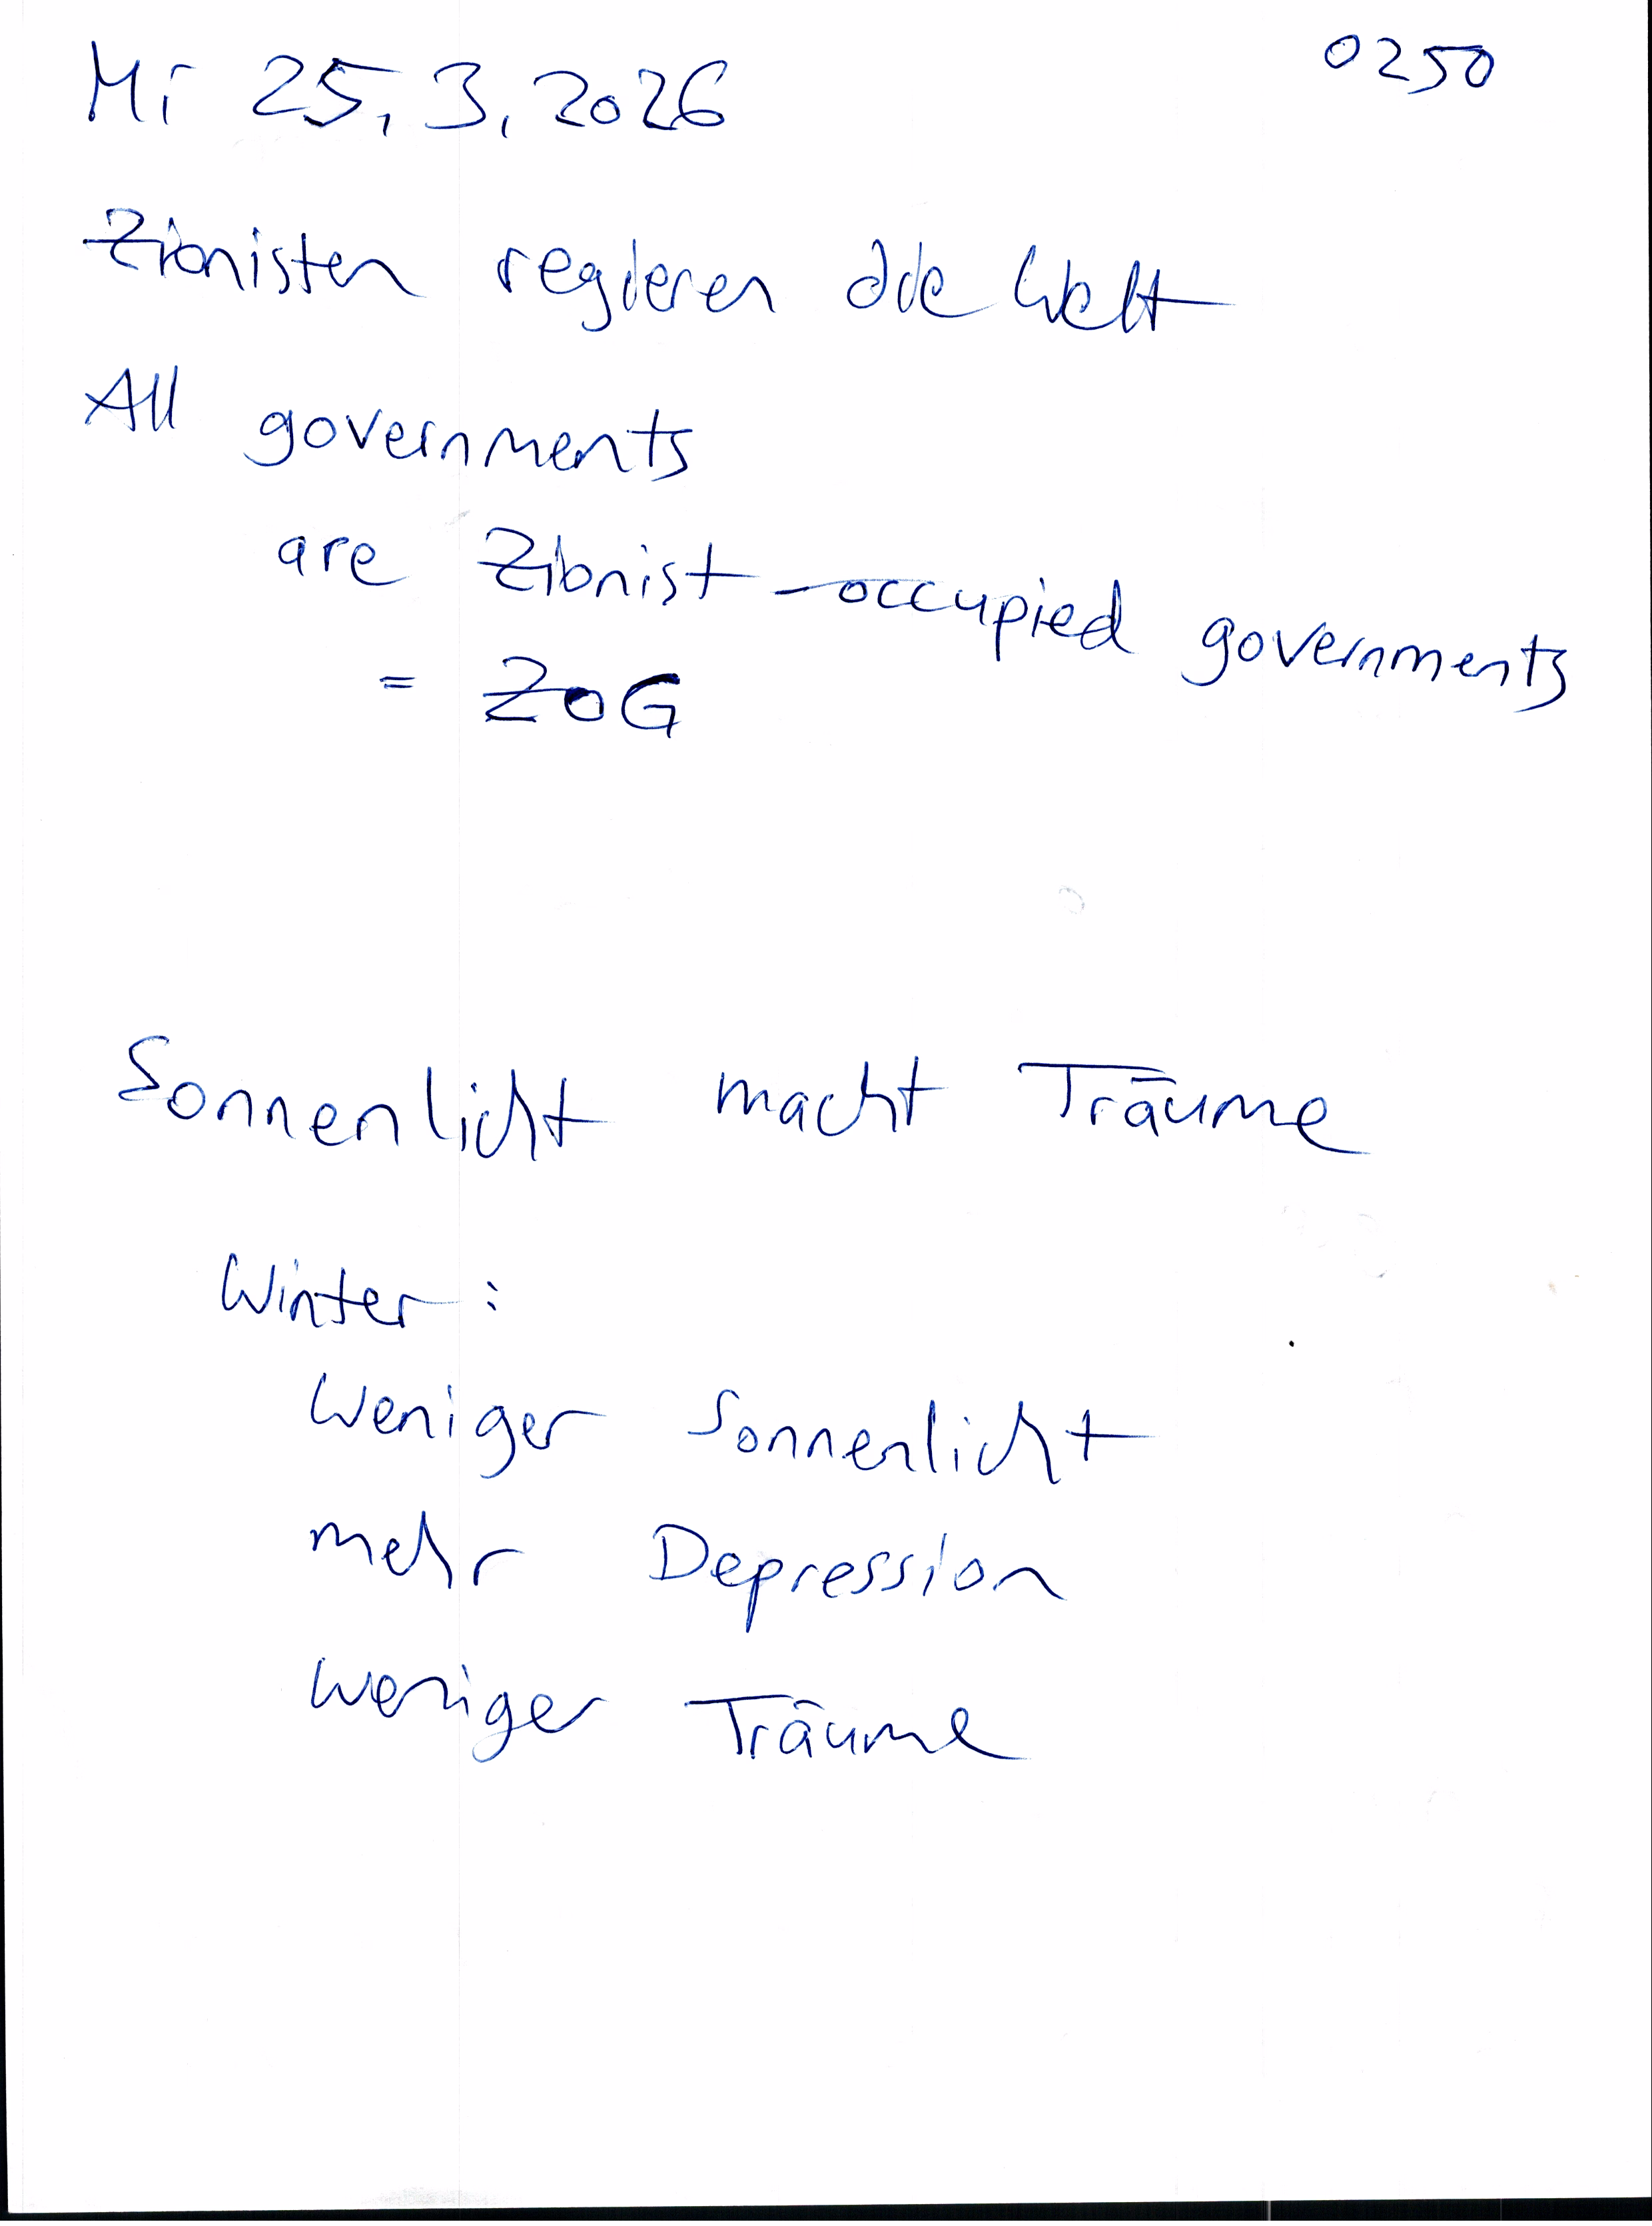 Mi 25.3.2026 0250
Zionisten regieren die Welt
All governments
are Zionist-occupied governments
= ZOG
Sonnenlicht macht Träume
Winter:
weniger Sonnenlicht
mehr Depression
weniger Träume